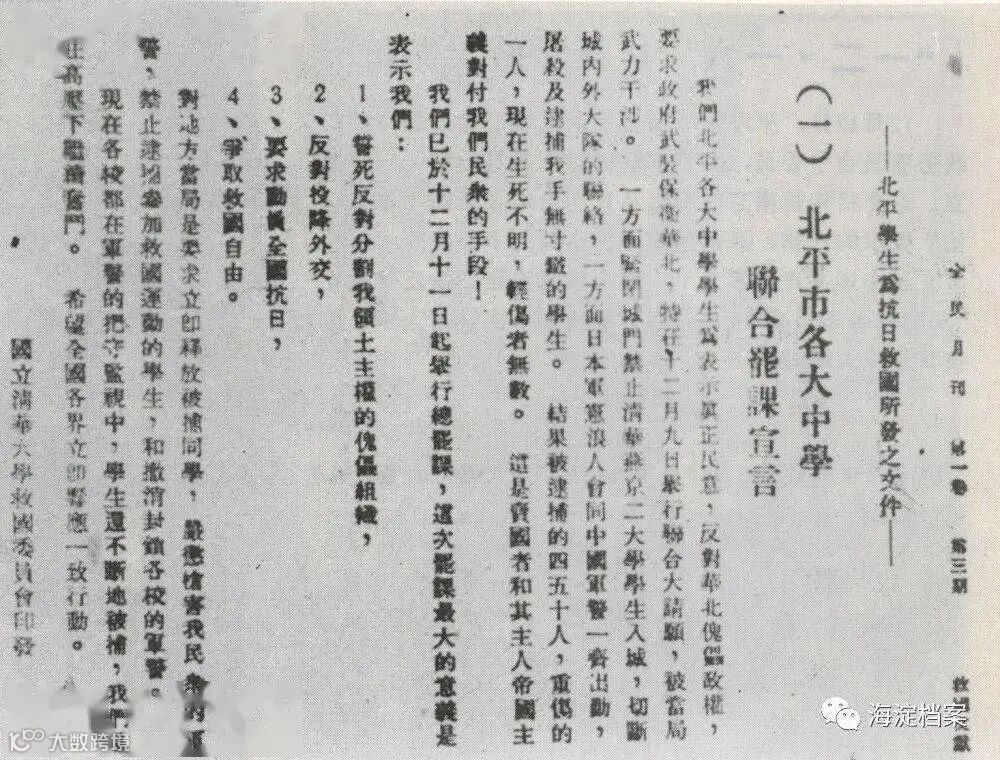 全民月刊 第一卷 第三期 救國文獻
——北平學生為抗日救國所發之文件——
（一）北平市各大中學
聯合罷課宣言
我們北平各大中學學生為表示眞正民意，反對華北傀儡政權，
要求政府武裝保衛華北，特在十二月九日舉行聯合大請願，被當局
武力干涉。一方面緊閉城門禁止清華燕京二大學學生入城，切斷
城內外大隊的聯絡，一方面日本軍憲浪人會同中國軍警一齊出動，
屠殺及逮捕我手無寸鐵的學生。結果被逮捕的四五十人，重傷的
一人，現在生死不明，輕傷者無數。這是賣國者和其主人帝國主
義對付我們民衆的手段！
我們已於十二月十一日起舉行總罷課，這次罷課最大的意義是
表示我們：
1、誓死反對分割我領土主權的傀儡組織，
2、反對投降外交，
3、要求動員全國抗日，
4、爭取救國自由。
對地方當局是要求立即釋放被捕同學，嚴懲槍害我民衆的軍
警，禁止逮捕參加救國運動的學生，和撤消封鎖各校的軍警。
現在各校都在軍警的把守監視中，學生還不斷地被捕，我們
在高壓下繼續奮鬥。希望全國各界立即響應一致行動。
國立清華大學救國委員會印發
海淀档案
大数跨境